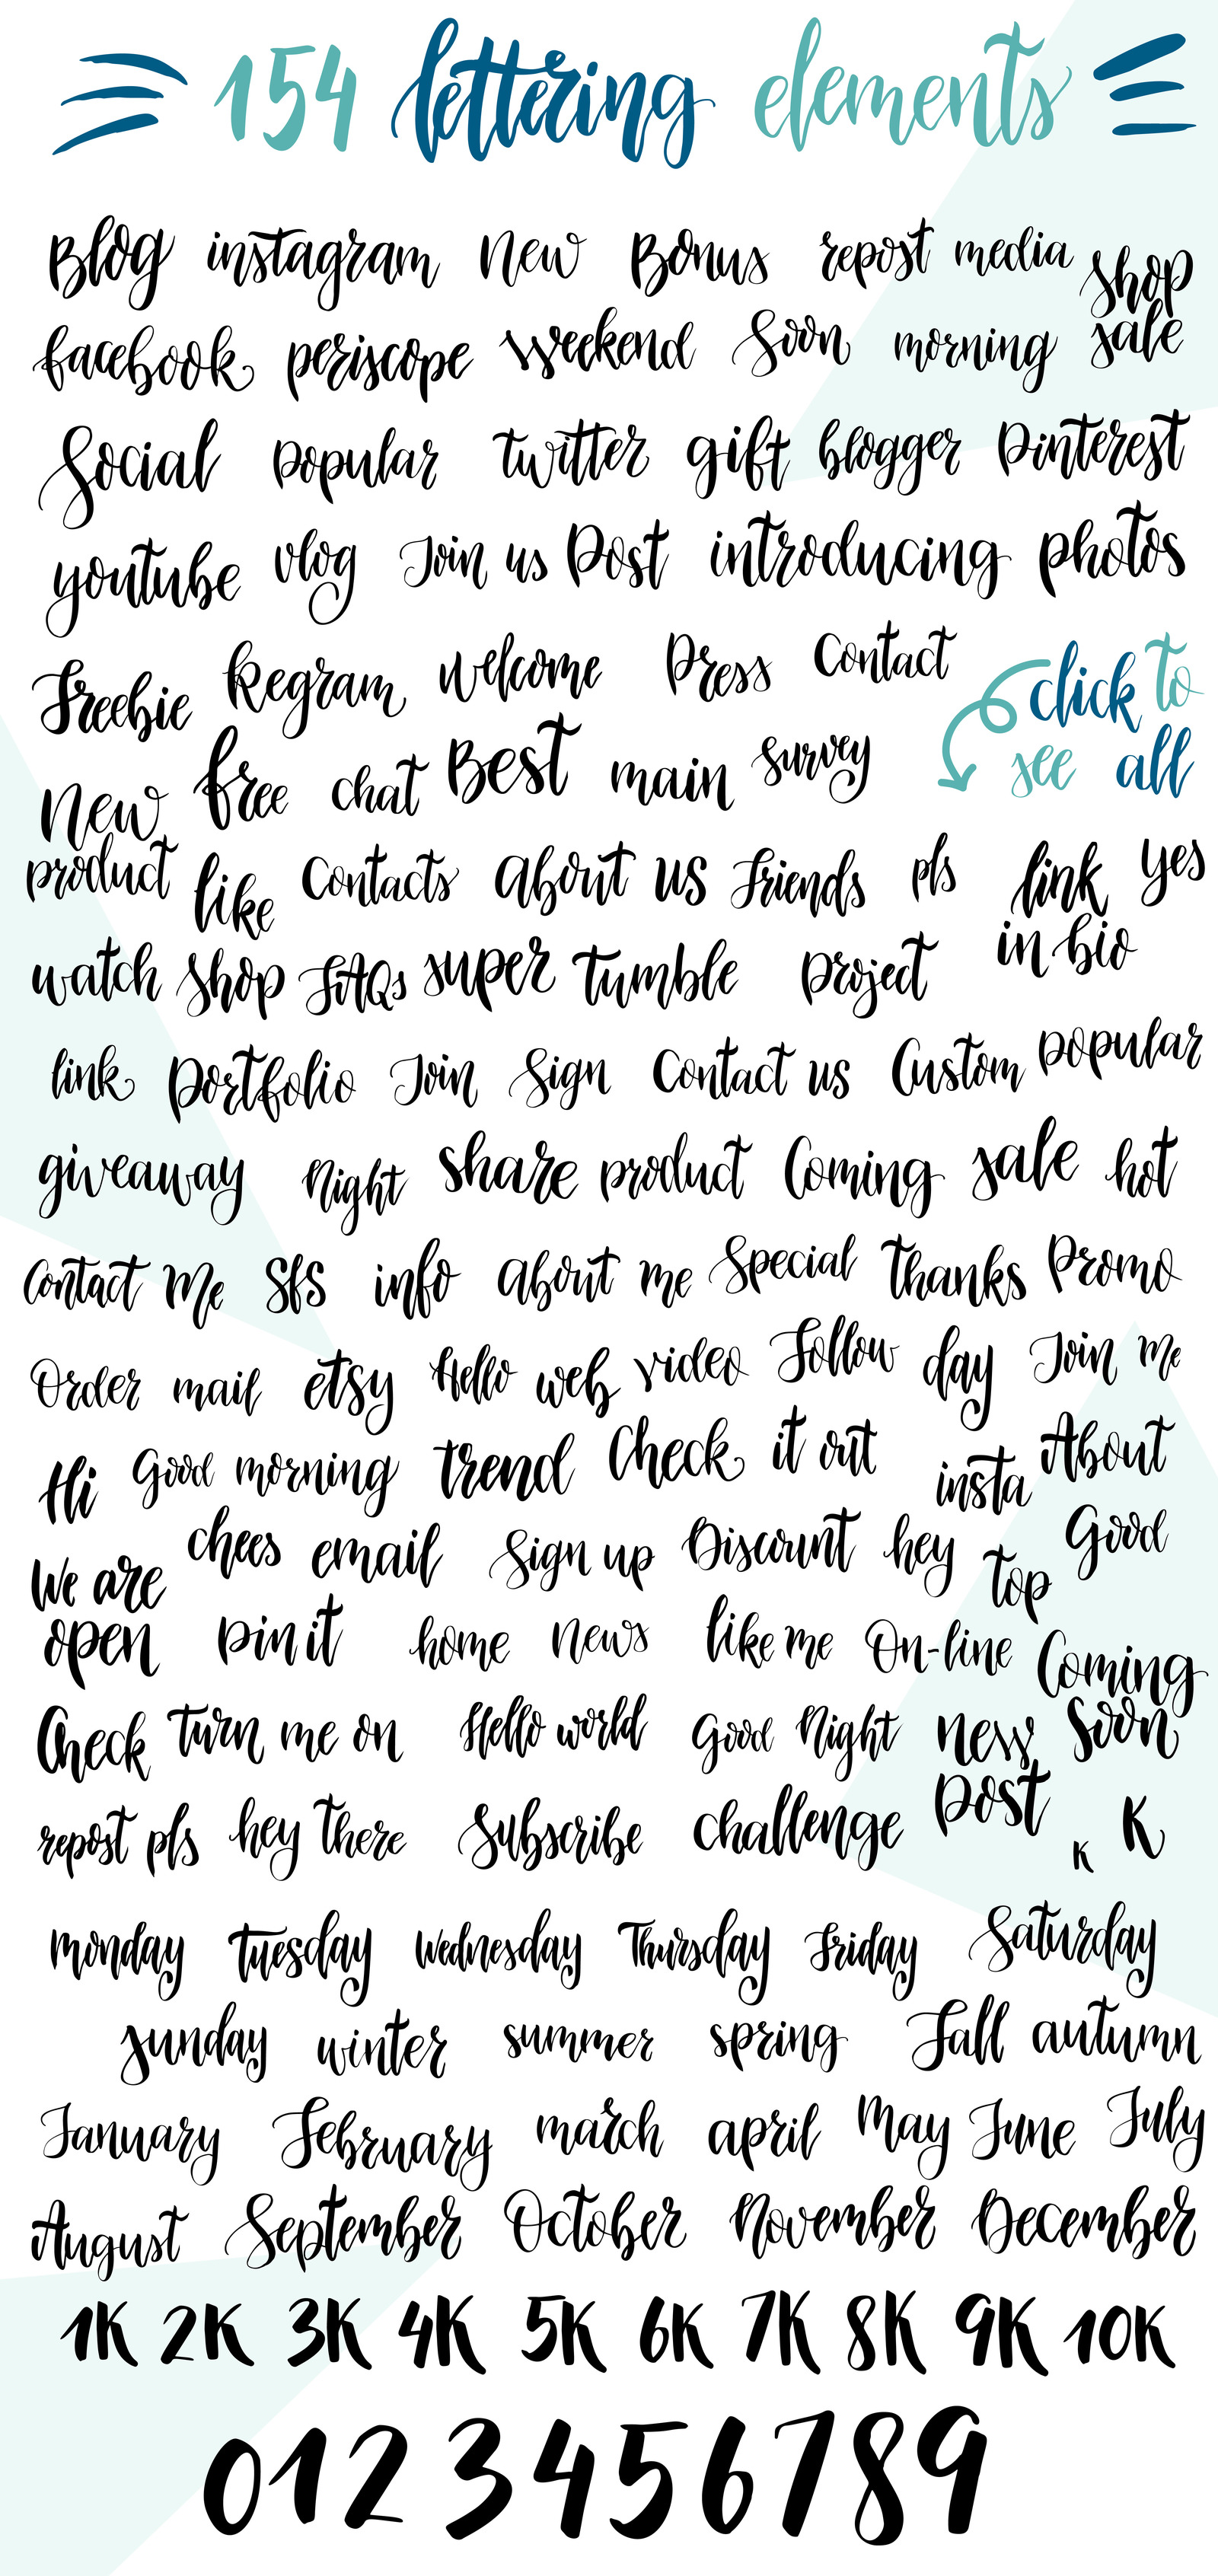 154 lettering elements
Blog instagram New Bonus repost media shop
facebook periscope weekend Soon morning sale
Social popular twitter gift blogger pinterest
youtube vlog Join us Post introducing photos
Freebie Regram welcome Press Contact click to
New free chat Best main survey see all
product like Contacts about us Friends pls link yes
watch shop FAQs super tumble project in bio
link portfolio Join Sign Contact us Custom popular
giveaway Night share product Coming sale hot
Contact Me SFS info about me Special Thanks Promo
Order mail etsy Hello web video Follow day Join Me
Hi Good morning trend Check it out insta About
We are chees email Sign up Discount hey top Good
open pin it home news like me On-line Coming
Check turn me on Hello world Good Night new Soon
repost pls hey there Subscribe challenge post K K
monday Tuesday Wednesday Thursday Friday Saturday
sunday winter summer spring Fall autumn
January February march april May June July
August September October November December
1K 2K 3K 4K 5K 6K 7K 8K 9K 10K
0 1 2 3 4 5 6 7 8 9